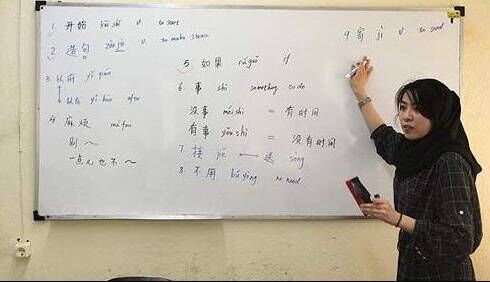 1. 开始 kāi shǐ v to start
2. 造句 zào jù v to make
3. 以前 yǐ qián
以后 yǐ hòu after
4. 麻烦 má fan
别 ~
一点儿也不 ~
5. 如果 rú guǒ if
6. 事 shì something to do
没事 méi shì = 有时间
有事 yǒu shì = 没有时间
7 接 jiē ←→ 送 sòng
8. 不用 bú yòng no need
9 寄 jì v to send